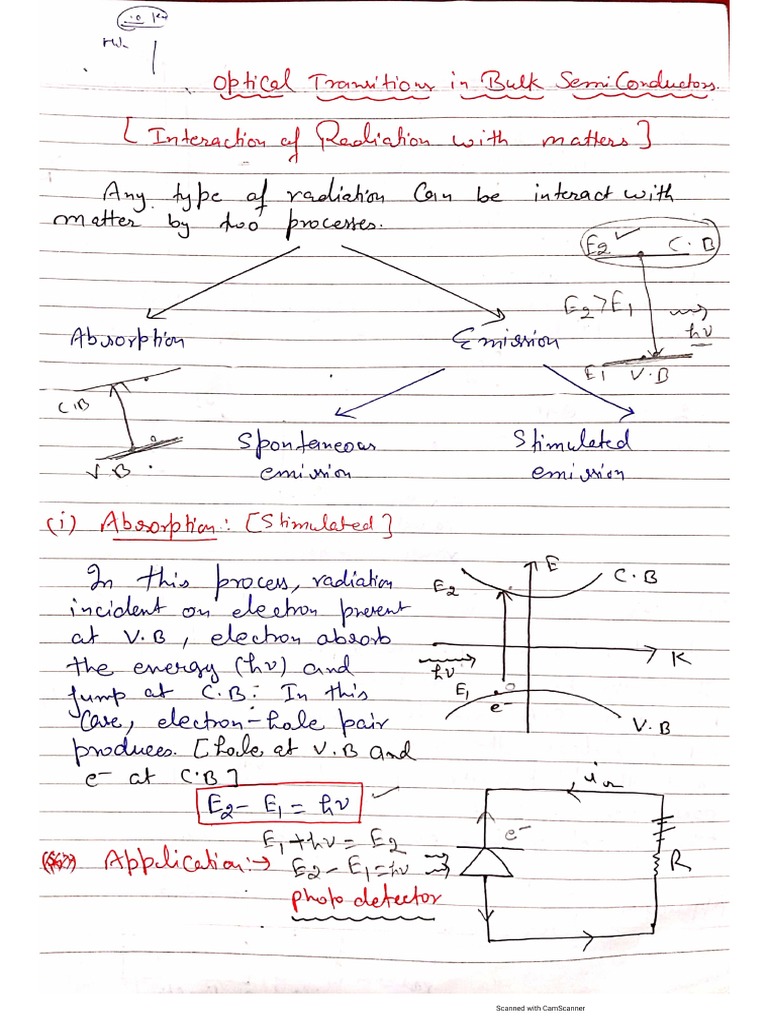 Optical Transitions in Bulk SemiConductors.
[Interaction of Radiation with matters]
Any type of radiation Can be interact with
matter by two processes.
E2 ✓ C.B
E2>E1
hν
E1 V.B
Absorption
Emission
C.B
V.B.
Spontaneous
emission
Stimulated
emission
(i) Absorption: [Stimulated]
In this process, radiation
incident on electron present
at V.B, electron absorb
the energy (hν) and
jump at C.B. In this
Case, electron-hole pair
produces. [hole at V.B and
e- at C.B]
E
E2
C.B
K
hν
E1
e-
V.B
E2 - E1 = hν ✓
E1 + hν = E2
Application:→ E2 - E1 = hν
photo detector
e-
R
Scanned with CamScanner